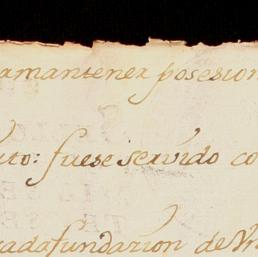 amantener posesion
uto: fuese servido co
cadafundazion de Vr